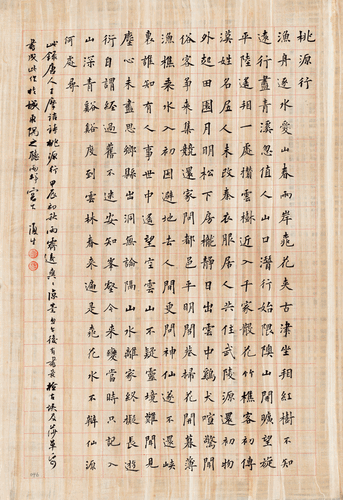 桃源行
漁舟逐水愛山春兩岸桃花夾古津坐看紅樹不知
遠行盡青溪忽值人山口潛行始隈隩山開曠望旋
平陸遙看一處攢雲樹近入千家散花竹樵客初傳
漢姓名居人未改秦衣服居人共住武陵源還從物
外起田園月明松下房櫳靜日出雲中雞犬喧驚聞
俗客爭來集競還家問都邑平明閭巷掃花開薄暮
漁樵乘水入初因避地去人間更聞神仙遂不還峽
裏誰知有人事世中遙望空雲山不疑靈境難聞見
塵心未盡思鄉縣出洞無論隔山水辭家終擬長遊
衍自謂經過舊不迷安知峰壑今來變當時只記入
山深青谿度到雲林春來遍是桃花水不辨仙源
何處尋
此錄唐人王摩詰詩桃源行甲辰初秋雨霽
書成此作於城東隅之聽雨軒窗下復生